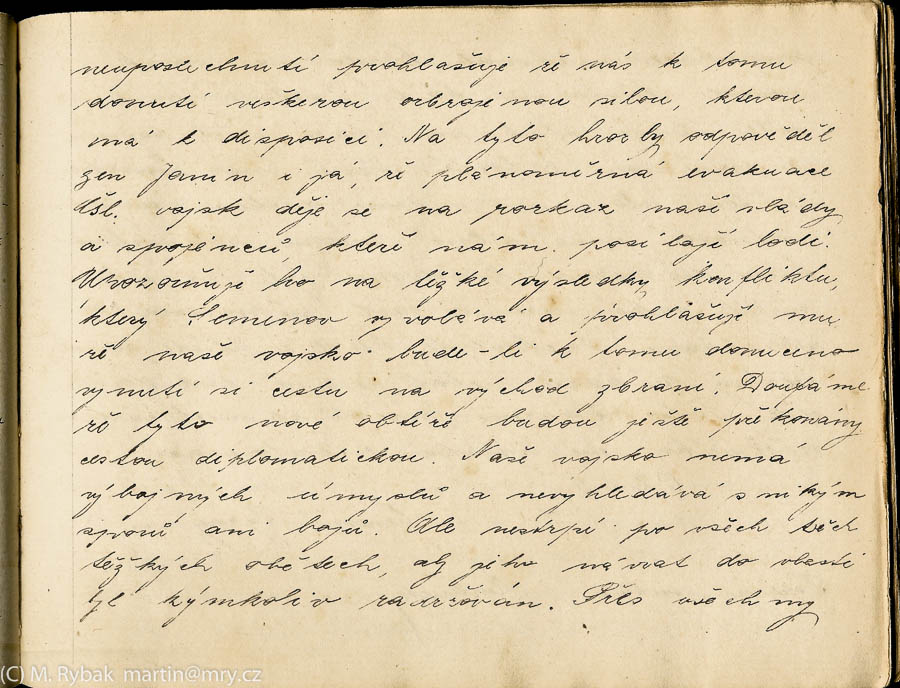 neuposlechnutí prohlašuje že nás k tomu
donutí veškerou ozbrojenou silou, kterou
má k disposici. Na tyto hrozby odpověděl
gen Janin i já, že plánoměrná evakuace
čsl. vojsk děje se na rozkaz naší vlády
a spojenců, kteří nám posílají lodi.
Upozorňuji ho na těžké výsledky konfliktu,
který Semenov vyvolává a prohlašuji mu
že naše vojsko bude-li k tomu donuceno
vynutí si cestu na východ zbraní. Doufáme
že tyto nové obtíže budou ještě překonány
cestou diplomatickou. Naše vojsko nemá
výbojných úmyslů a nevyhledává s nikým
sporů ani bojů. Ale nestrpí po všech těch
těžkých obětech, aby jeho návrat do vlasti
byl kýmkoliv zadržován. Přes všechny
(C) M. Rybak martin@mry.cz